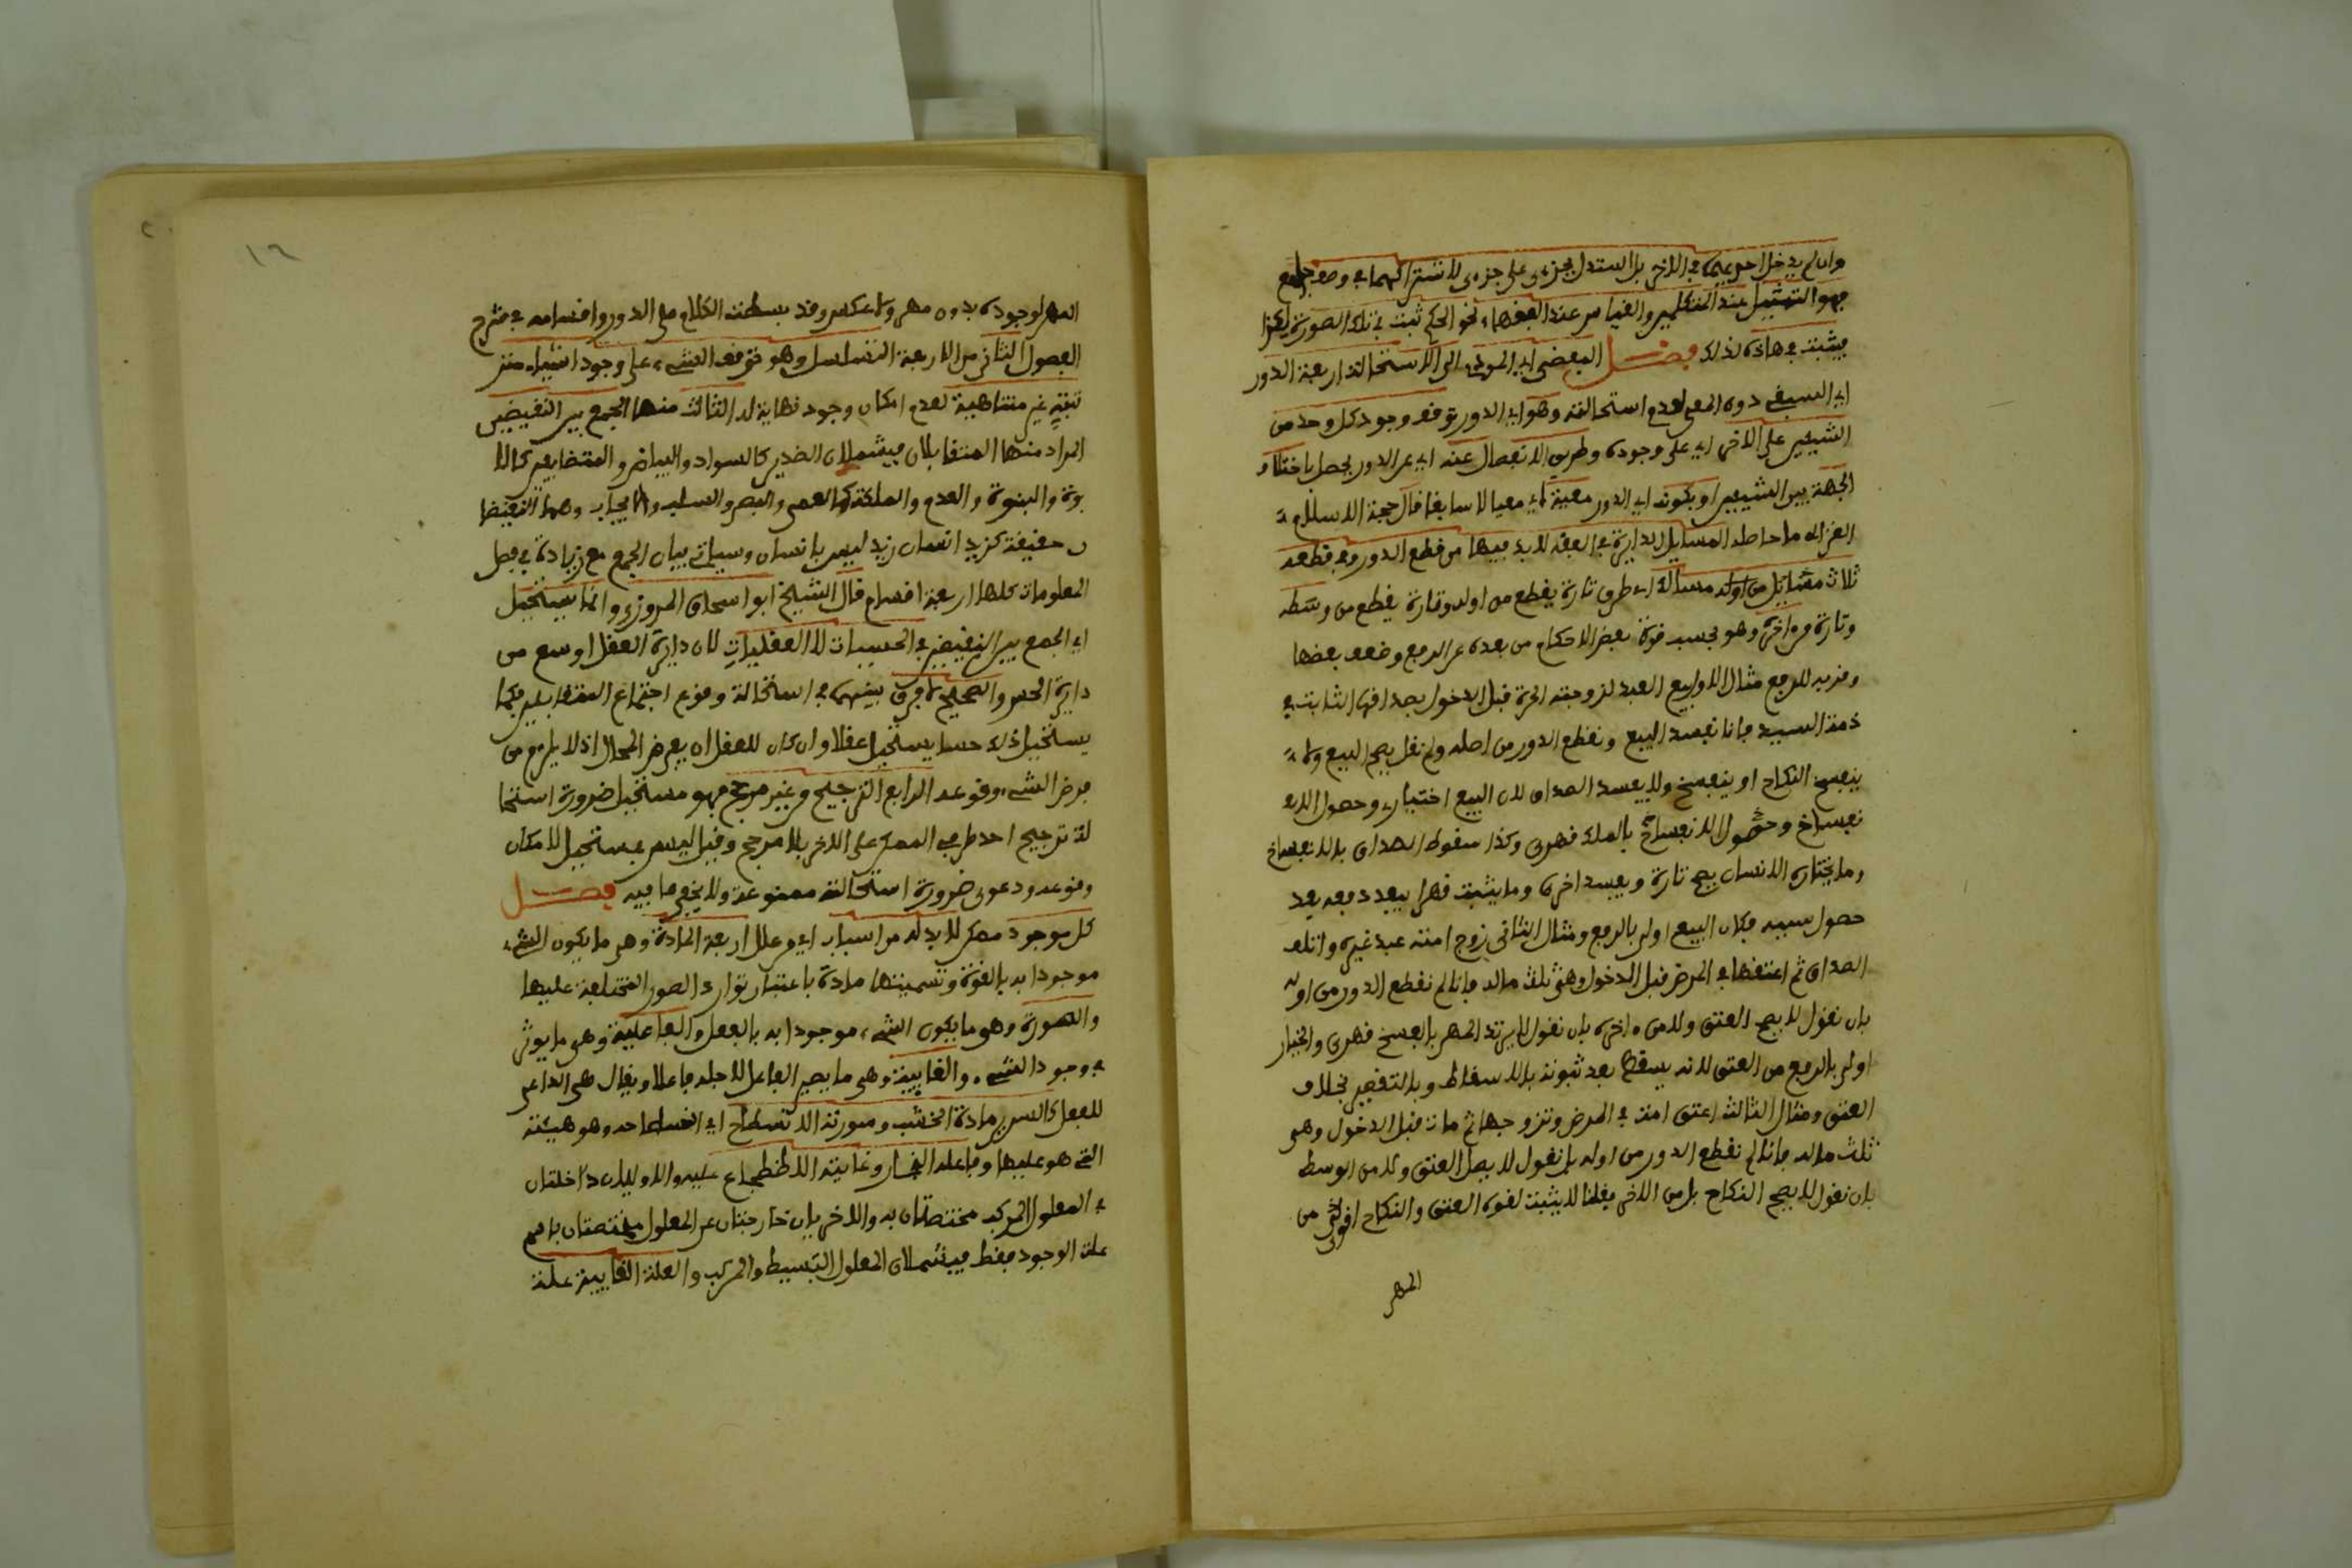 وان لم يدخل احديهما في الاخر بل استدل بجزءي على جزءي لاشتراكهما في وصف جامع
فهو التمثيل عند المتكلمين والقياس عند الفقهاء نحو الحكم ثبت في تلك الصورة لكذا
فيثبت في هاذه لذلك فصل المفضي اي المودي الى الاستحالة اربعة الدور
اي السبقي دون المعي لعدم استحالته وهو اي الدور توقف وجود كل وحد من
الشيئين على الاخر اي على وجوده وطريق الانفصال عنه اي عن الدور يحصل باختلاف
الجهة بين الشيئين او بكونه اي الدور معية اي معيا لا سابقا قال حجة الاسلام
الغزالي ما حاصله المسايل الدايرة في الفقه لا بد فيها من قطع الدور وفي قطعه
ثلاث مسايل من اوله مسالك اي طرق تارة يقطع من اوله وتارة يقطع من وسطه
وتارة من اخره وهو بحسب قوة بعض الاحكام من بعده عن الدفع وضعف بعضها
وقربه للدفع مثال الاول بيع العبد لزوجته الحرة قبل الدخول بصداقها الثابت في
ذمة السيد فانا نفسد البيع ونقطع الدور من اصله ولم نقل يصح البيع ولا
ينفسخ النكاح او ينفسخ ولا يفسد الصداق لان البيع اختياري وحصول الا
نفساخ وحصول الانفساخ بالملك قهري وكذا سقوط الصداق بالانفساخ
وما يختاره الانسان يصح تارة ويفسد اخرى وما يثبت قهرا يبعد دفعه بعد
حصول سببه فكان البيع اولى بالدفع ومثال الثاني زوج امته عبد غيره واتلف
الصداق ثم اعتقها في المرض قبل الدخول وهي ثلث ماله فانا لم نقطع الدور من اوله
بان نقول لا يصح العتق ولا من اخره بان نقول لا يرتد المهر بالفسخ قهري والخيار
اولى بالدفع من العتق لانه يسقط بعد ثبوته بالاسقاط وبالتقصير بخلاف
العتق ومثال الثالث اعتق امته في المرض وتزوجها ثم مات قبل الدخول وهي
ثلث ماله فانا لم نقطع الدور من اوله بان نقول لا يصل العتق ولا من الوسط
بان نقول لا يصح النكاح بل من الاخر فقلنا لا يثبت لقوة العتق والنكاح اقوى من
المهر
١٦
المهر لوجوده بدون مهر ولا عكس وقد بسطت الكلام على الدور واقسامه في شرح
الفصول الثاني من الاربعة التسلسل وهو توقف الشيء على وجود اشياء متر
تبة غير متناهية لعدم امكان وجود نهاية له الثالث منها الجمع بين النقيضين
المراد منها المتقابلان فيشملان الضدين كالسواد والبياض والمتضايفين كالا
بوة والبنوة والعدم والملكة كالعمى والبصر والسلب والايجاب وهما النقيضا
ن حقيقة كزيد انسان زيد ليس بانسان وسياتي بيان الجمع مع زيادة في فصل
المعلومات كلها اربعة اقسام قال الشيخ ابو اسحاق المروزي وانما يستحيل
اي الجمع بين النقيضين في الحسيات لا العقليات لان دايرة العقل اوسع من
دايرة الحس والصحيح لا فرق بينهما في استحالة وقوع اجتماع المتقابلين فكما
يستحيل ذلك حسا يستحيل عقلا وان كان للعقل ان يفرض المحال اذ لا يلزم من
فرض الشيء وقوعه الرابع الترجيح من غير مرجح فهو مستحيل ضرورة استحا
لة ترجيح احد طرفي الممكن على الاخر بلا مرجح وقيل ليس بمستحيل لامكان
وقوعه ودعوى ضرورة استحالته ممنوعة ولا يخفى ما فيه فصل
كل موجود ممكن لا بد له من اسباب اي علل اربعة المادة وهي ما يكون الشيء
موجودا به بالقوة وتسميتها مادة باعتبار توارد الصور المختلفة عليها
والصورة وهو ما يكون الشيء موجودا به بالفعل والفاعلية وهي ما يوثر
في وجود الشيء والغايية وهي ما يصير الفاعل لاجله فاعلا ويقال هي الداعي
للفعل كالسرير مادة الخشب وصورته الانسطاح اي انسطاحه وهو هيئته
التي هو عليها وفاعله النجار وغايته الاضطجاع عليه والاوليان داخلتان
في المعلول المركب مختصتان به والاخريان خارجتان عن المعلول مختصتان باسم
علة الوجود فقط فيشملان المعلول البسيط والمركب والعلة الغايية علة